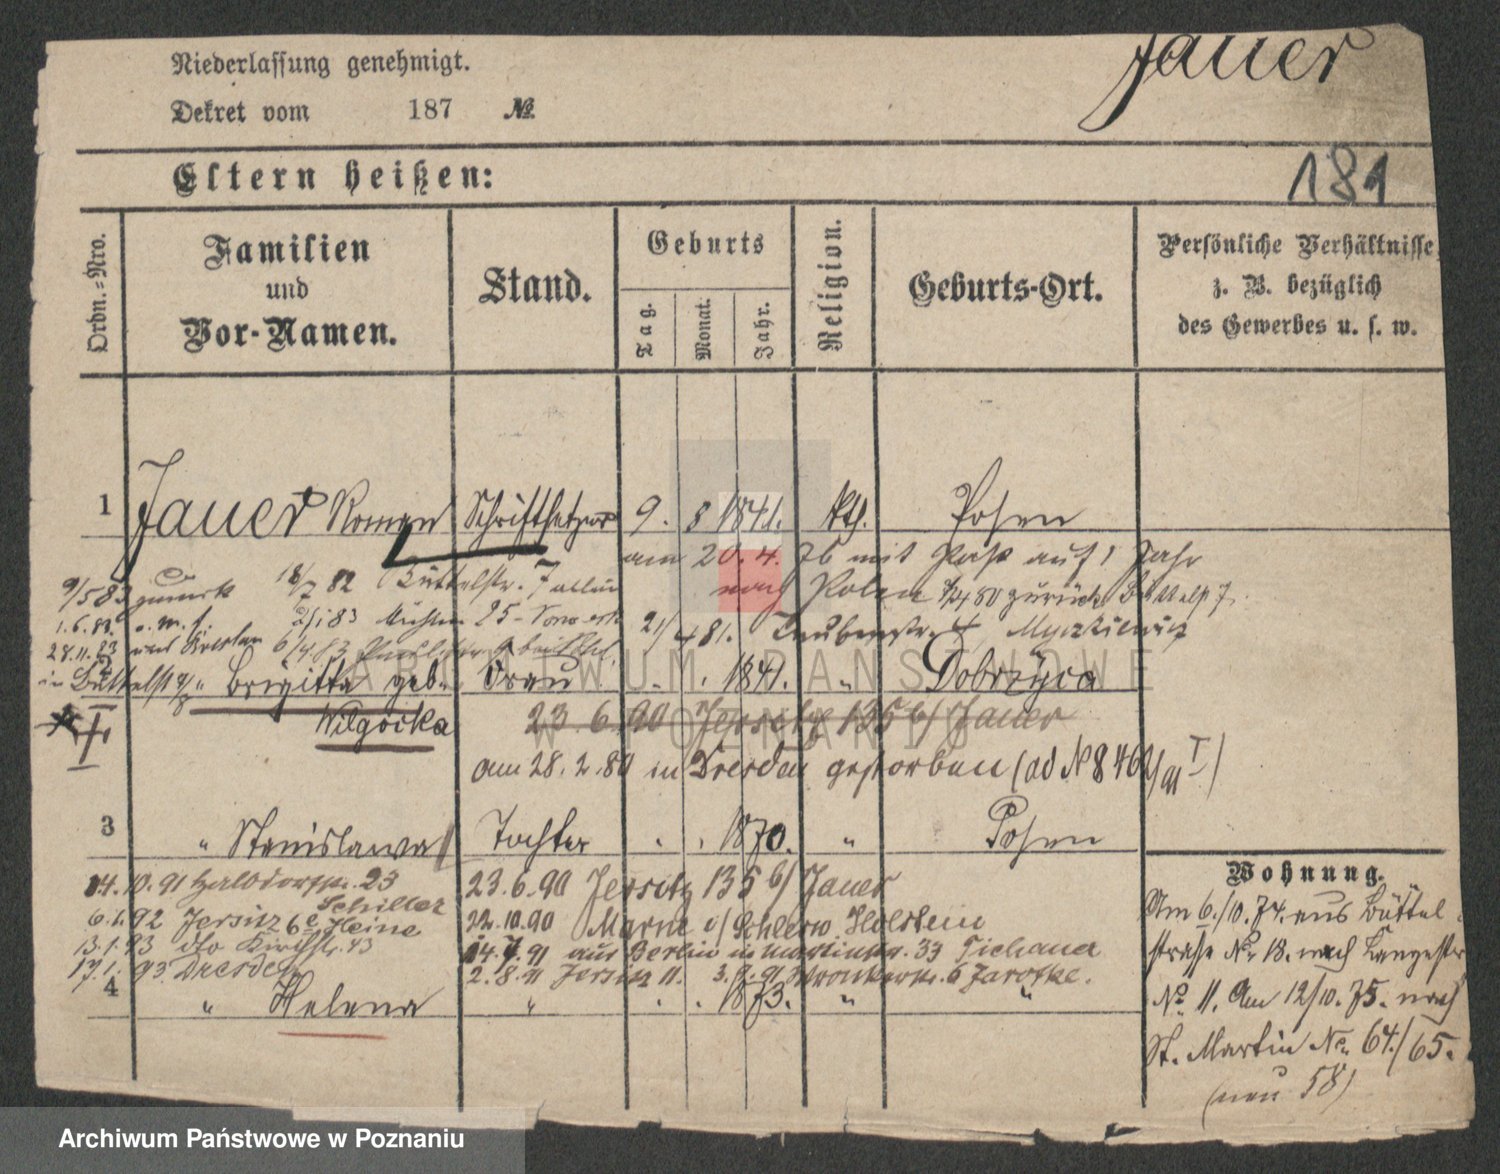 Jauer
Niederlassung genehmigt.
Dekret vom 187 №
181
Eltern heißen:
Ordn.=Nro.
Familien
und
Vor-Namen.
Stand.
Geburts
Tag.
Monat.
Jahr.
Religion.
Geburts-Ort.
Persönliche Verhältnisse
z. B. bezüglich
des Gewerbes u. s. w.
1 Jauer Roman Schriftsetzer 9. 8 1841. kth. Posen
am 20. 4. 76 mit Paß auf 1 Jahr
9/5 83 zurück 18/7 82 Büttelstr. 7 allein nach Polen 80 zurück
1.6.83. 2/1 83 25 21/4 81. Taubenstr.
28.11.83 6/4 83
in Büttelst " Brigitta geb. Frau " . 1841. " Dobrzyca
Wilgocka 23.6.90 Jersitz 135b/ Jauer
am 28.2.80 in Dresden gestorben (ad № 8462/91 I)
3 " Stanislawa Tochter " . 1870. " Posen
14.10.91 Halbdorfstr. 23 23.6.90 Jersitz 135b/ Jauer
Schiller
6.1.92 Jersitz 6e Heine 22.10.90 Marne i/ Schlesw. Holstein
13.1.93 dto Kirchstr. 43 14.7.91 aus Berlin in Martinstr. 33 Tichauer
17.1.93 Dresden 2.8.91 Jersitz 11. 3.9.91 Wronkerstr. 6 Jarotke.
4 " Helena " " . 1873. " "
Wohnung.
Am 6./10. 74. aus Büttel-
strasse № 18. nach Langestr
№ 11. Am 12/10. 75. nach
St. Martin № 64./65.
(neu 58)
ARCHIWUM PAŃSTWOWE
W POZNANIU
Archiwum Państwowe w Poznaniu